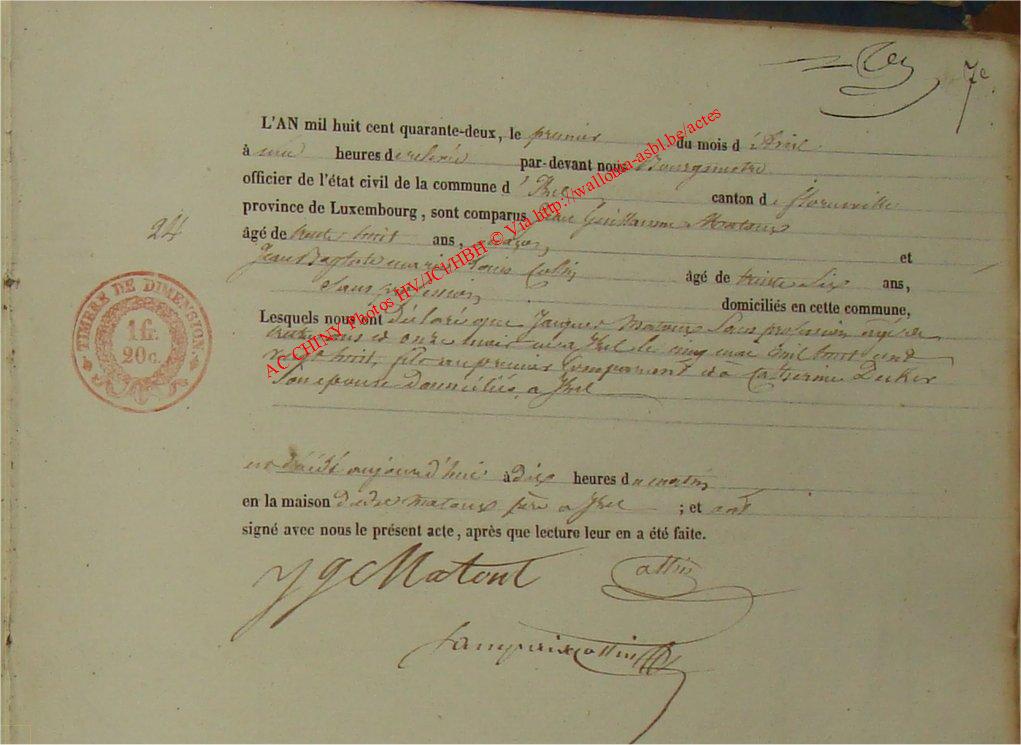 7e
L'AN mil huit cent quarante-deux, le premier du mois d'Avril
à une heures de relevée par-devant nous Bourgmestre
officier de l'état civil de la commune d'Izel canton de florenville
province de Luxembourg, sont comparus Jean Guillaume Matoux
24
âgé de trente huit ans, et
Jean Baptiste marie Louis Collin âgé de trente six ans,
Sans profession domiciliés en cette commune,
Lesquels nous ont déclaré que Jacques Matoux Sans profession agé de
treize ans et onze mois né a Izel le cinq mai mil huit cent
vingt huit, fils au premier Comparant et à Catherine Decker
Son epouse domiciliés a Izel
est décédé aujourd'hui à dix heures du matin
en la maison dudit matoux père a Izel ; et ont
signé avec nous le présent acte, après que lecture leur en a été faite.
TIMBRE DE DIMENSION.
1 fl.
20 c.
AC CHINY Photos HV/JCV/HBH © Via http://wallonia-asbl.be/actes